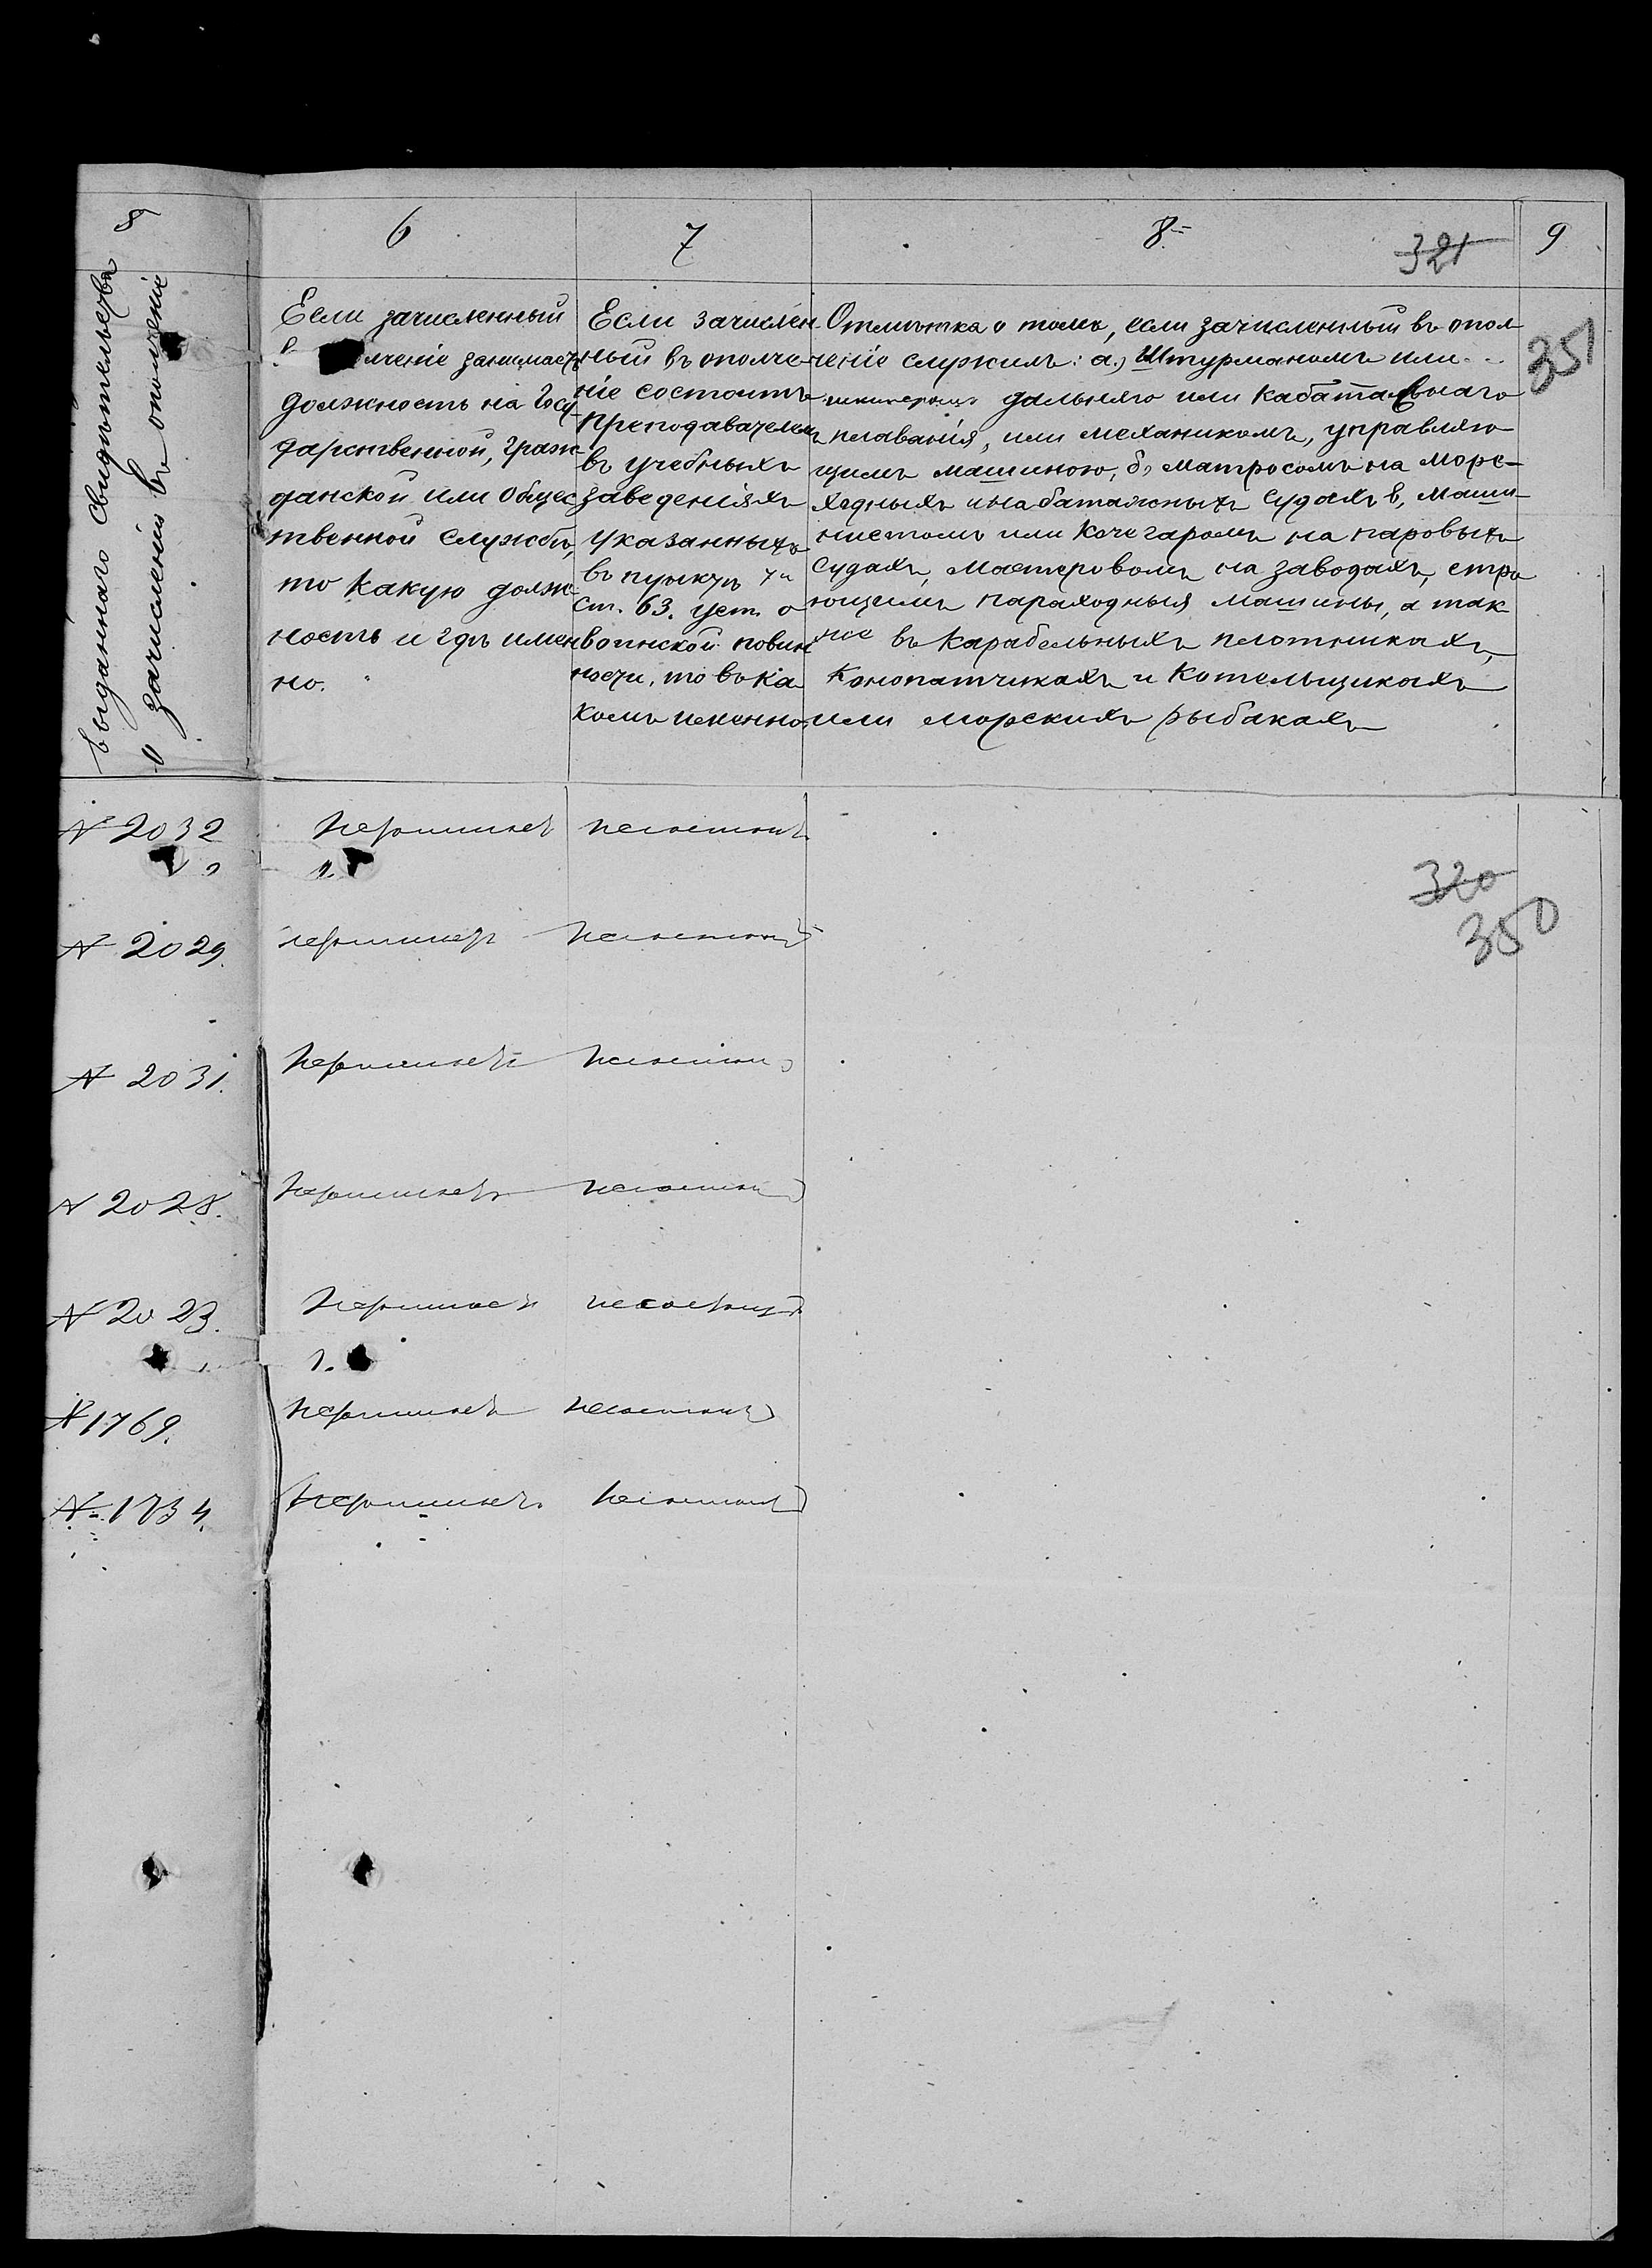 5
6
7
8
321
9
351
выданнаго свидѣтельства
о зачисленіи въ ополченіе
Если зачисленный
лченіе занимаетъ
должность на Госу
дарственной, граж
данской или общес
твенной службѣ,
то какую долж
ность и гдѣ имен
но.
Если зачислен
ный въ ополче
ніе состоитъ
преподавателемъ
въ учебныхъ
заведеніяхъ
указанныхъ
въ пунктѣ
ст. 63. уст. о
воинской повин
ности, то въ ка
комъ именно
Отмѣтка о томъ, если зачисленный въ опол
ченіе служилъ: а) Штурманомъ или
дальняго или кабатажнаго
плаванія, или механикомъ, управляю
щимъ машиною, б, матросомъ на море-
ходныхъ и кабатажныхъ судахъ в, маши-
нистомъ или кочегаромъ на паровыхъ
судахъ, мастеровомъ на заводахъ, стро
ющимъ параходныя машины, а так
же въ карабельныхъ плотникахъ,
конопатчикахъ и котельщикахъ
или морскихъ рыбакахъ
№ 2032 несостоитъ
320
350
№ 2029. несостоитъ
№ 2031. несостоитъ
№ 2028. несостоитъ
№ 2023. несостоитъ
№ 1769. несостоитъ
№ 1734. несостоитъ